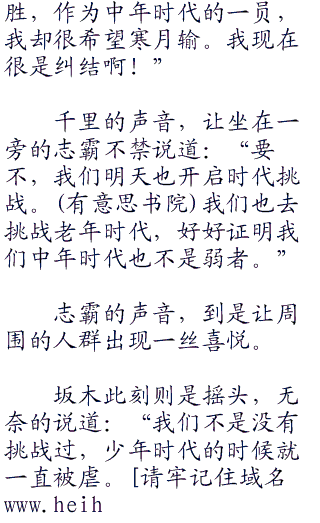 胜，作为中年时代的一员，
我却很希望寒月输。我现在
很是纠结啊！”
千里的声音，让坐在一
旁的志霸不禁说道：“要
不，我们明天也开启时代挑
战。(有意思书院)我们也去
挑战老年时代，好好证明我
们中年时代也不是弱者。”
志霸的声音，到是让周
围的人群出现一丝喜悦。
坂木此刻则是摇头，无
奈的说道：“我们不是没有
挑战过，少年时代的时候就
一直被虐。[请牢记住域名
www.heih